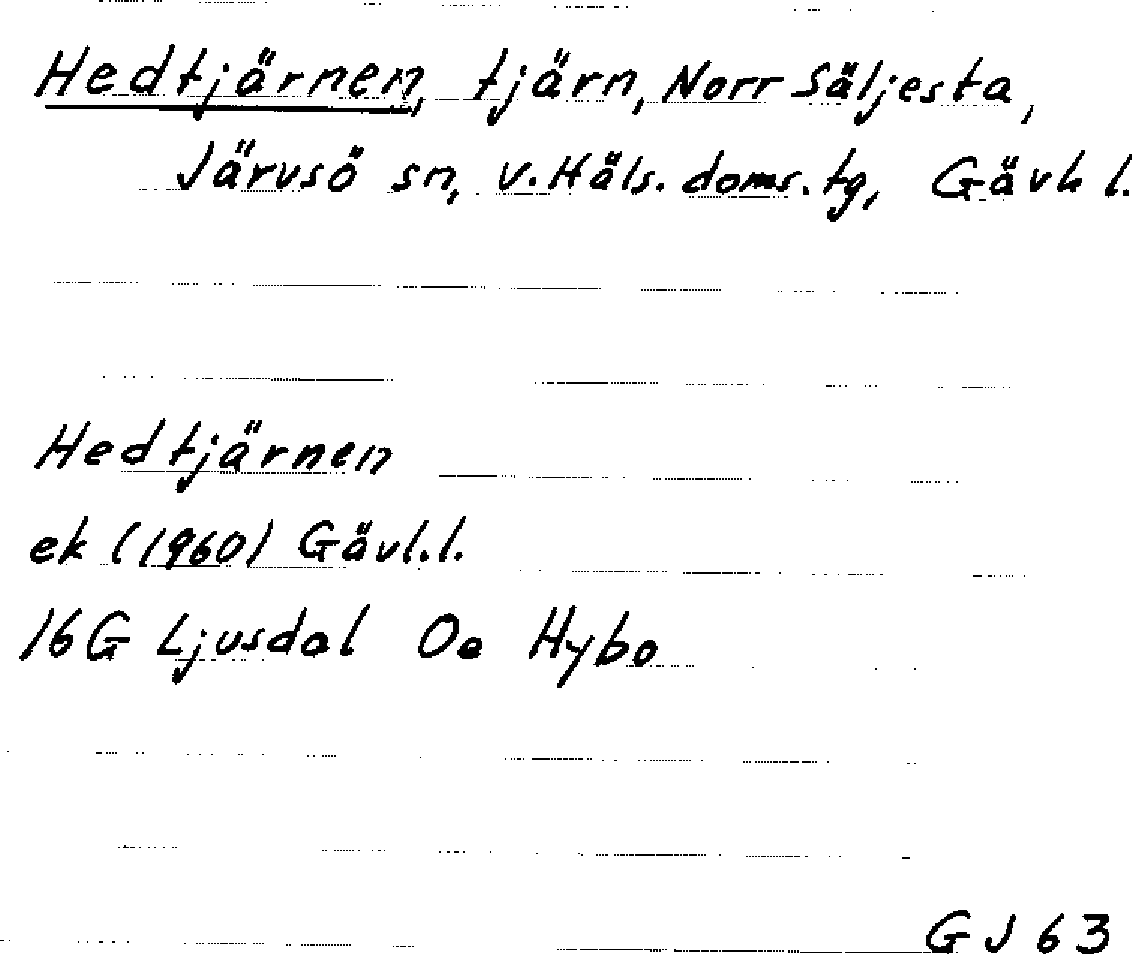 Hedtjärnen, tjärn, Norr Säljesta,
Järvsö sn, v. Häls. doms. tg, Gävl. l.
Hedtjärnen
ek (1960) Gävl. l.
16G Ljusdal Oe Hybo
GJ 63